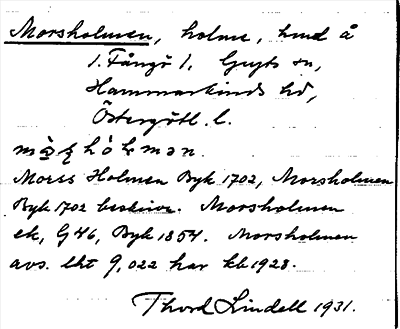 Morsholmen, holme, hmd å
1. Fångö 1, Gryts sn,
Hammarkinds hd,
Östergötl. l.
Morss Holmen Byk 1702, Morsholmen
Byk 1702 beskivn. Morsholmen
ek, G 46, Byk 1854. Morsholmen
avs. lht 9,022 har kb 1928.
Thord Lindell 1931.